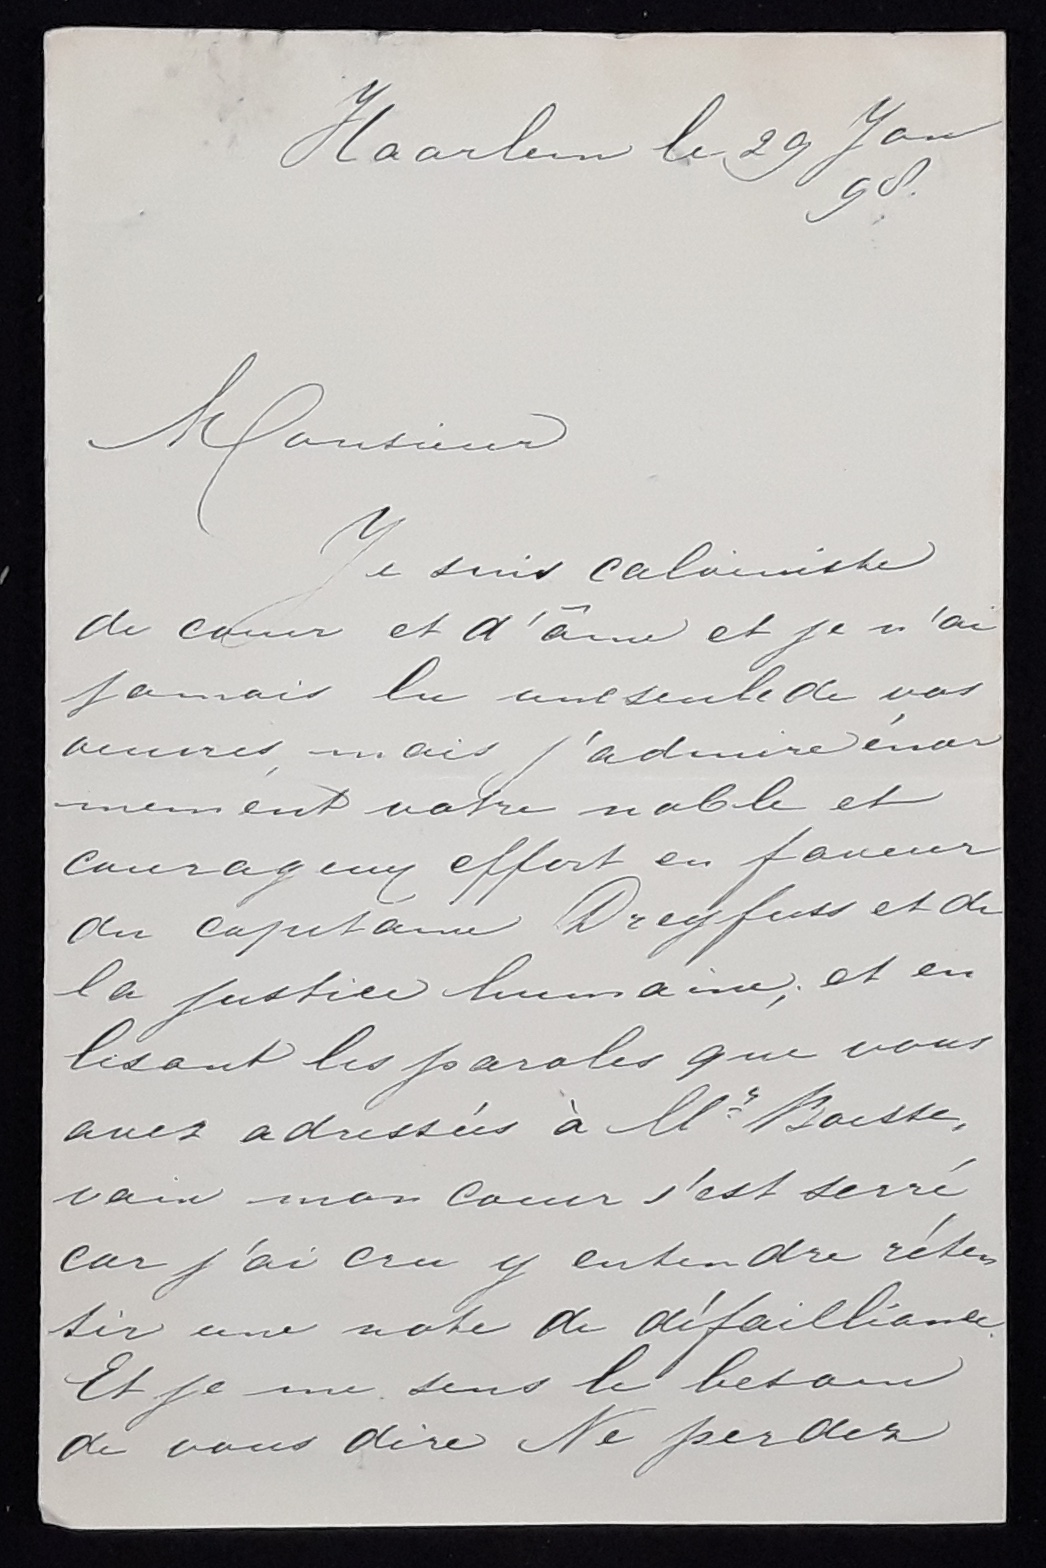 Haarlem le 29 Jan
98.
Monsieur
Je suis calviniste
de coeur et d'âme et je n'ai
jamais lu une seule de vos
oeuvres, mais j'admire énor
mement votre noble et
courageux effort en faveur
du capitaine Dreyfuss et de
la justice humaine, et en
lisant les paroles que vous
avez adressées à Mr Boisse,
vain mon coeur s'est serré
car j'ai cru y entendre réten
tir une note de défailliance.
Et je me sens le besoin
de vous dire Ne perdez